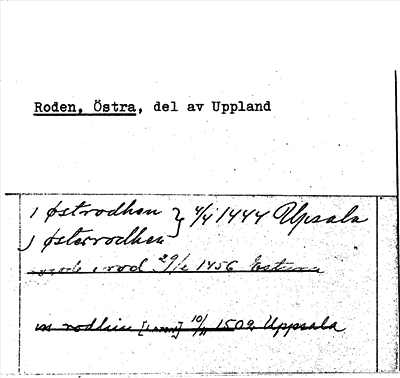 Roden, Östra, del av Uppland
i østrodhen } 4/4 1444 Upsala
i østerrodhen
i rod 29/2 1456
in rodhin 10/11 1502 Uppsala